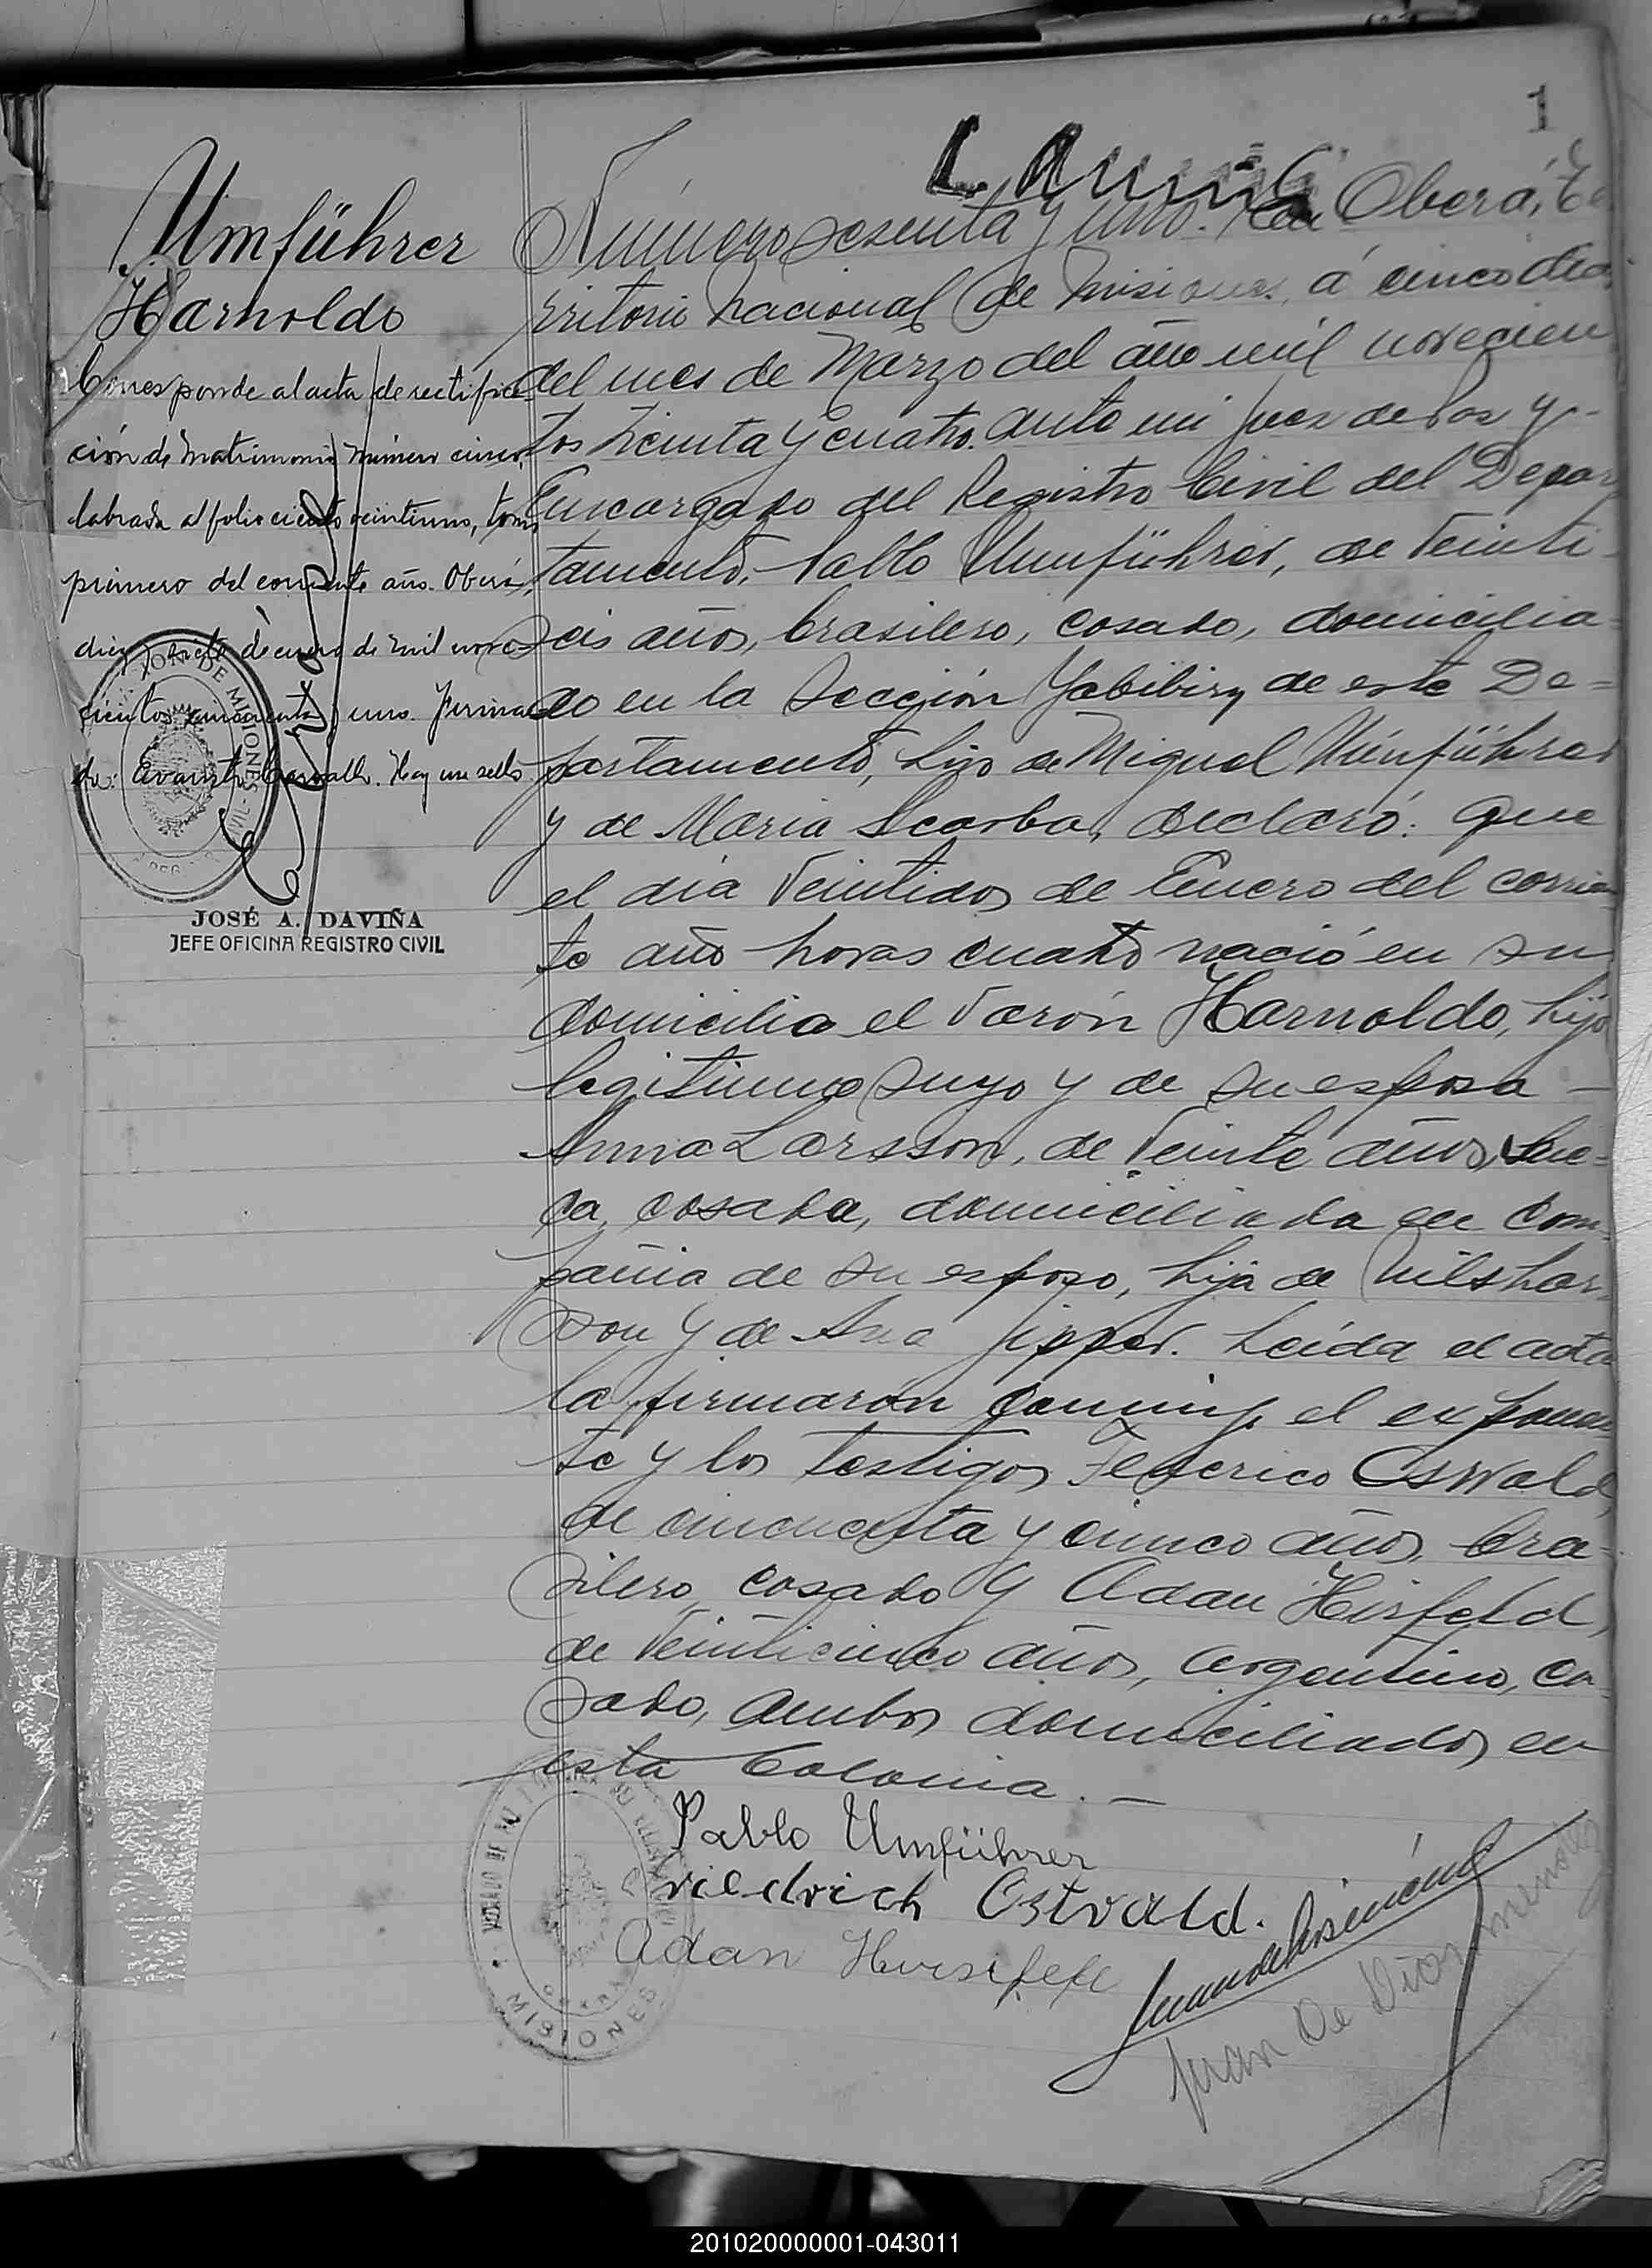 1
Umführer
Harnoldo
Corresponde al acta de rectifica
ción de Matrimonio número cinco,
labrada al folio ciento veintiuno, tomo
primero del corriente año. Oberá,
diez y siete de enero de mil nove
cientos cincuenta y uno. Firma
do: Evaristo Carvallo. Hay un sello
JOSÉ A. DAVIÑA
JEFE OFICINA REGISTRO CIVIL
Número sesenta y uno. En Oberá, Te
rritorio Nacional de Misiones, á cinco dias
del mes de Marzo del año mil novecien
tos treinta y cuatro. ante mi Juez de Paz y-
Encargado del Registro Civil del Depar
tamento, Pablo Umführer, de Veinti
seis años, brasilero, casado, domicilia
do en la Sección Yabibiry de este De=
partamento, hijo de Miguel Umführer
y de Maria Scarba, declaró: que
el día Veintidos de Enero del corrien
te año horas cuatro nació en su
domicilio el Varón Harnoldo, hijo
legitimo suyo y de su esposa -
Anna Larsson, de Veinte años, Sue=
ca, casada, domiciliada en com
pañia de su esposo, hija de Nils Lar
sson y de Ana Jipper. Leída el acta
la firmarón conmigo el exponen
te y los testigos Federico Oswald,
de cincuenta y cinco años, bra=
silero, casado y Adan Hirsfeld,
de Veinticinco años, argentino, ca
sado, ambos domiciliados en
esta Colonia.-
Pablo Umführer
Friedrich Ostvald.
Adan
Juan De Dios
MISIONES
201020000001-043011